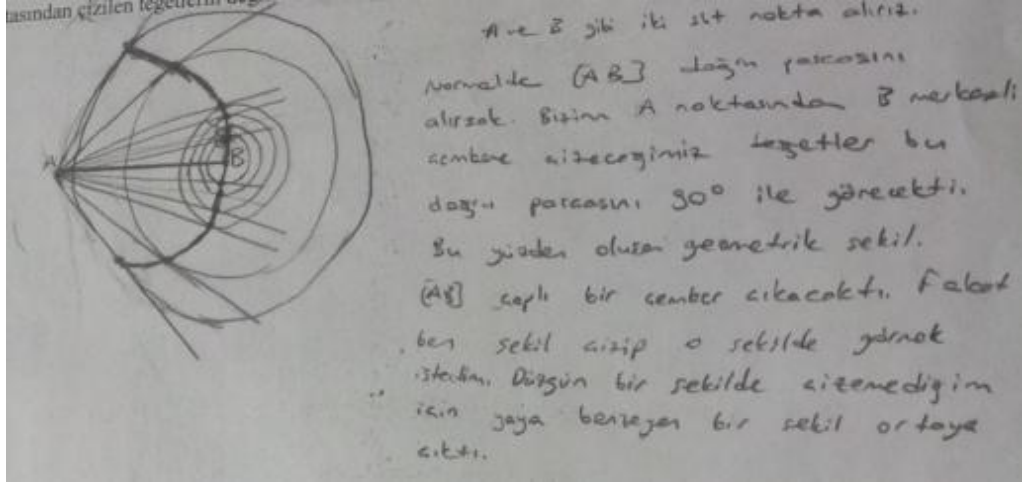 tasından çizilen teğetlerin değ
A ve B gibi iki sbt nokta alırız.
Normalde [AB] doğru parçasını
alırsak. Bizim A noktasından B merkezli
çembere çizeceğimiz teğetler bu
doğru parçasını 90° ile görecekti.
Bu yüzden oluşan geometrik şekil.
[AB] çaplı bir çember çıkacaktı. Fakat
ben şekil çizip o şekilde görmek
istedim. Düzgün bir şekilde çizemediğim
için yaya benzeyen bir şekil ortaya
çıktı.
A
B